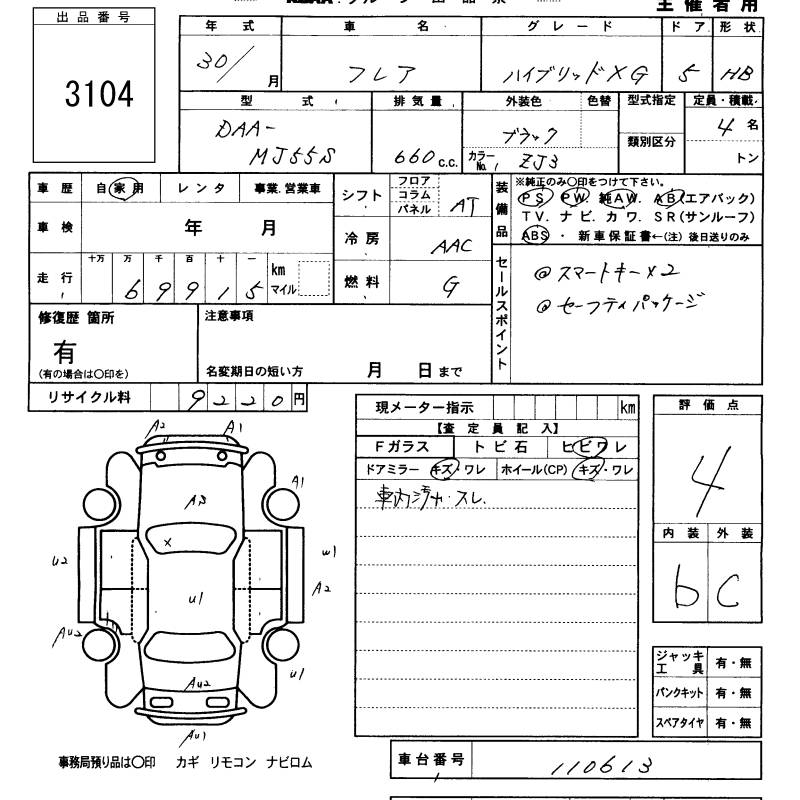 主催者用
出品番号
3104
年式 車名 グレード ドア 形状
30/ 月 フレア ハイブリッドXG 5 HB
型式 排気量 外装色 色替 型式指定 定員・積載
DAA-
MJ55S 660 c.c. ブラック
カラーNo. ZJ3 類別区分 4 名
トン
車歴 自家用 レンタ 事業.営業車
車検 年 月
走行 十万 万 千 百 十 一 km マイル
6 9 9 1 5
シフト フロア コラム パネル AT
冷房 AAC
燃料 G
装備品 ※純正のみ○印をつけて下さい。
PS PW 純AW. AB(エアバック)
TV. ナビ. カワ. SR(サンルーフ)
ABS ・ 新車保証書←(注) 後日送りのみ
セールスポイント
@スマートキーx2
@セーフティパッケージ
修復歴 箇所
有
(有の場合は○印を)
注意事項
名変期日の短い方 月 日まで
リサイクル料 9220円
現メーター指示 km
【査定員記入】
Fガラス トビ石 ヒビワレ
ドアミラー キズ・ワレ ホイール(CP) キズ・ワレ
車内ジャ・スレ.
評価点
4
内装 外装
b C
A2 A1
A1
A3
X
U2 W1
U1 A2
AU2
U1
AU2
AU1
ジャッキ工具 有・無
パンクキット 有・無
スペアタイヤ 有・無
事務局預り品は○印 カギ リモコン ナビロム
車台番号 110613